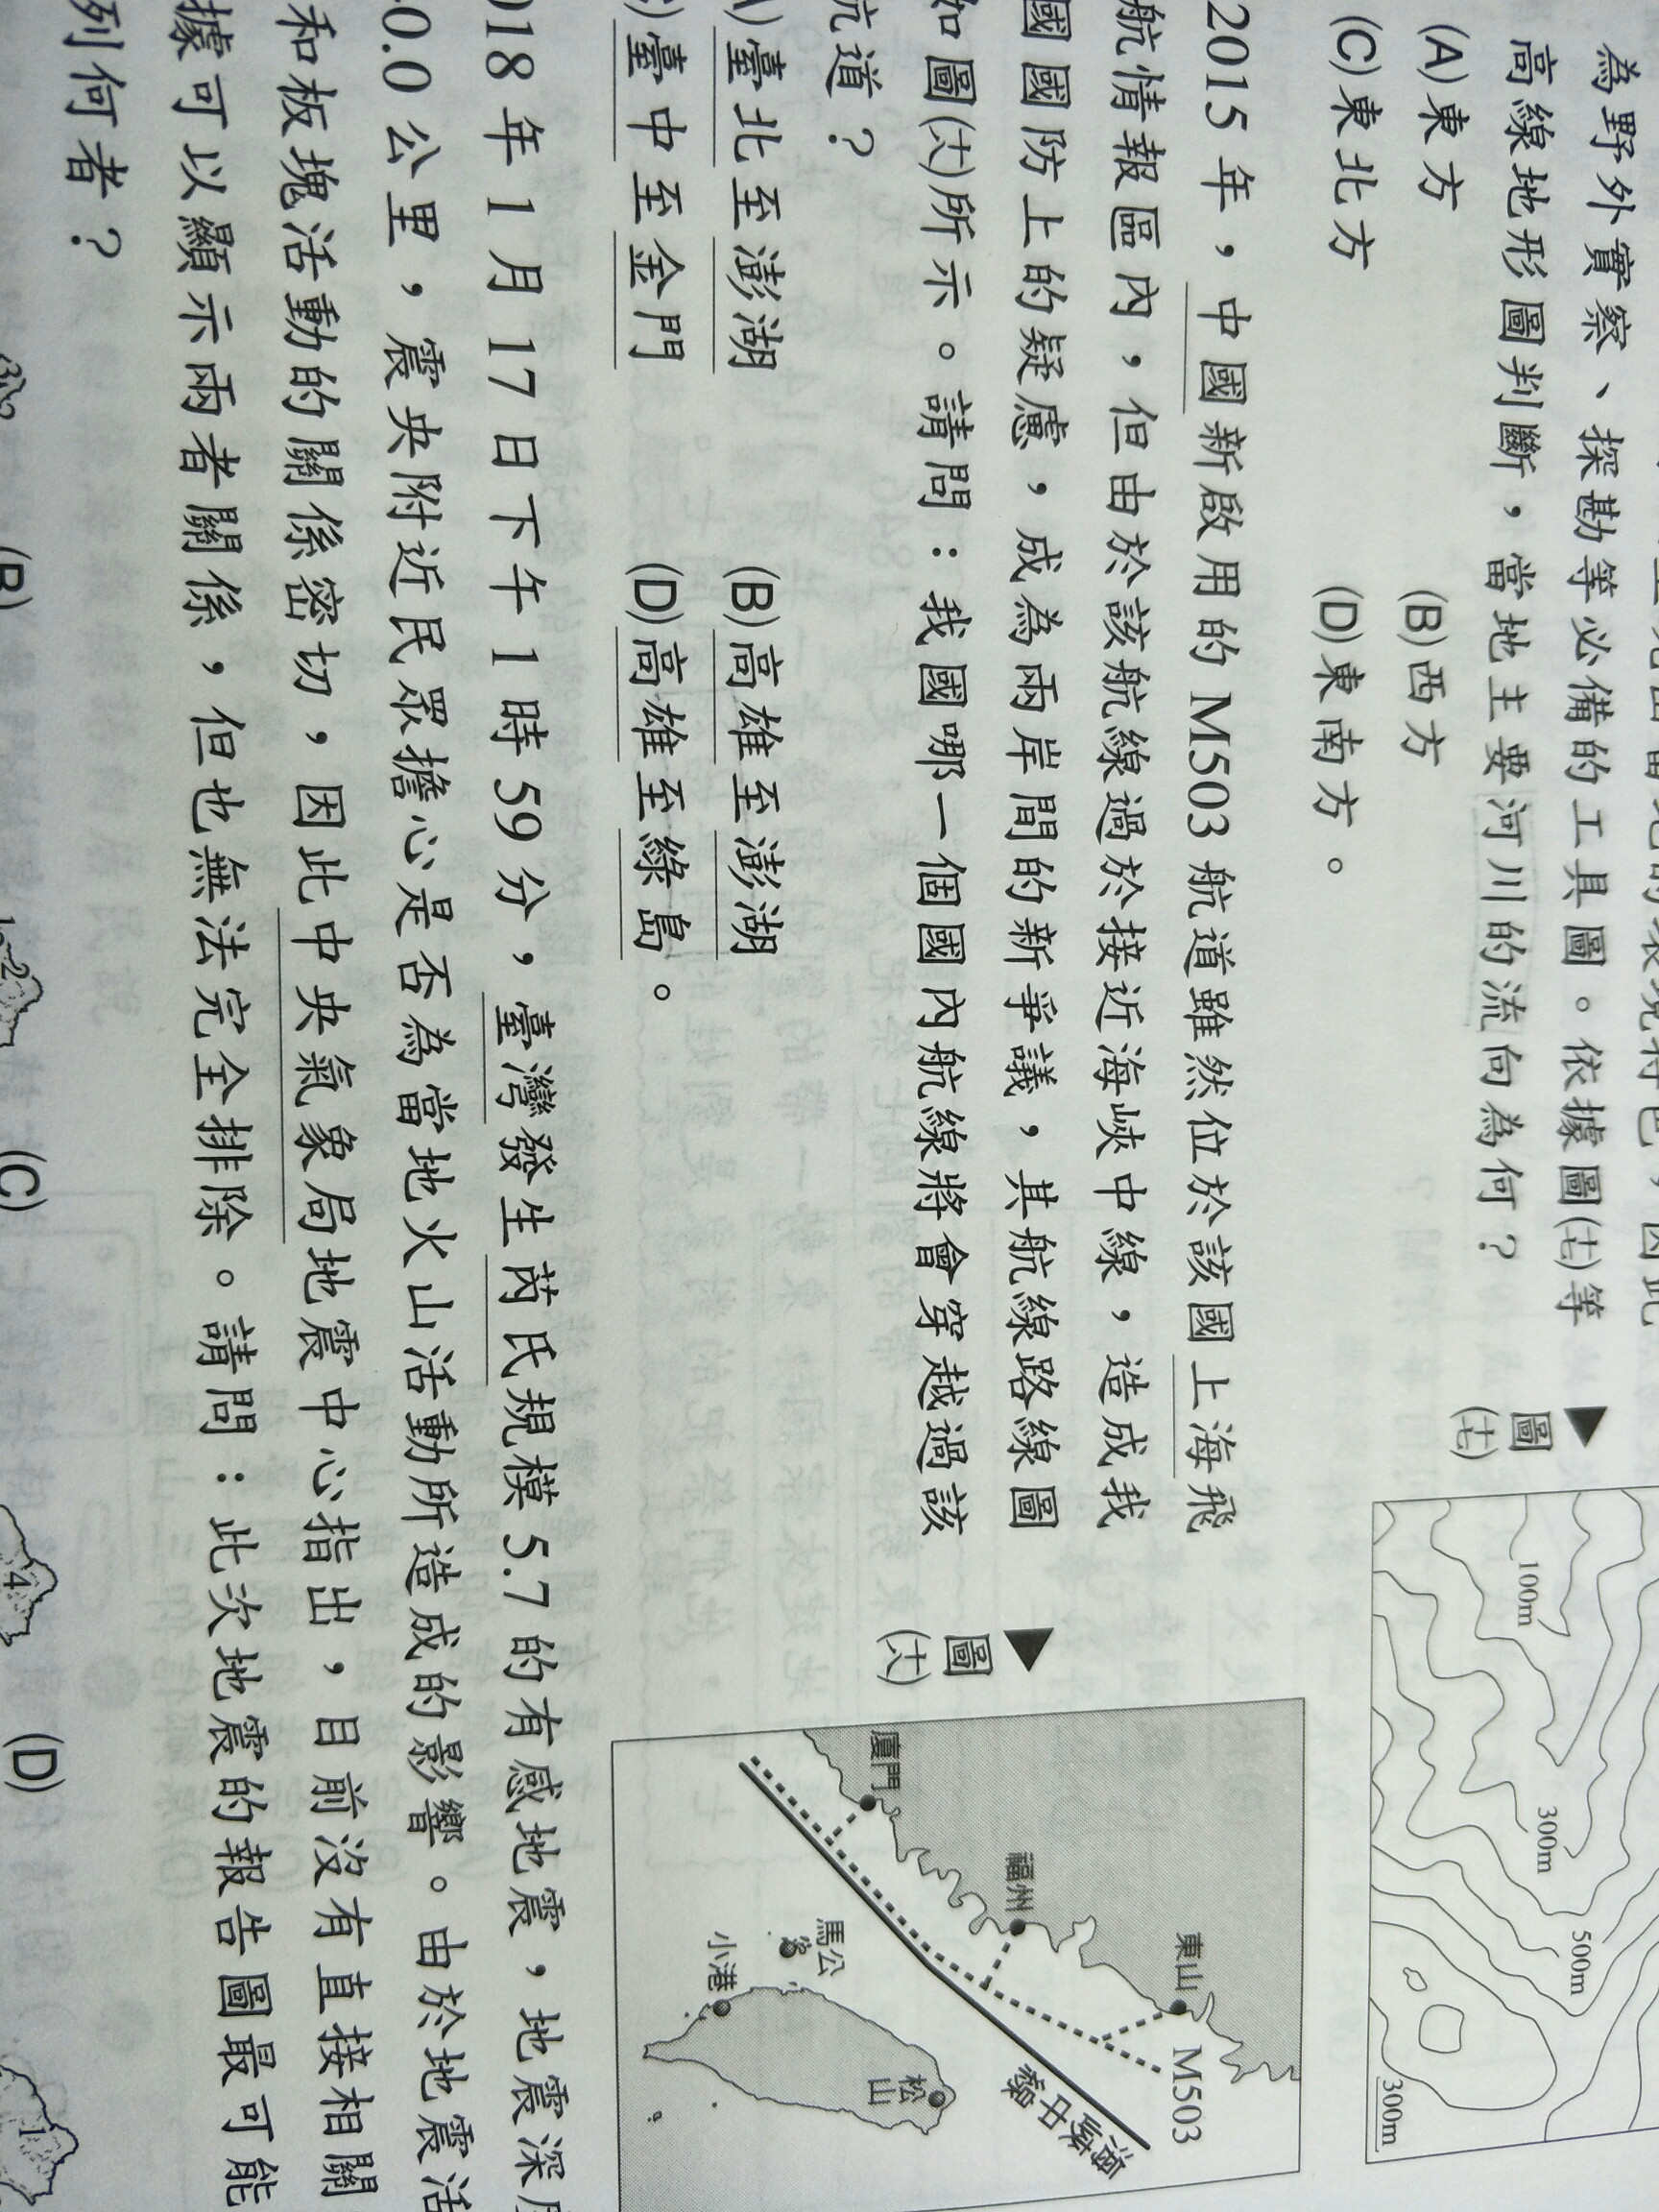 為野外實察、探勘等必備的工具圖。依據圖(十七)等
高線地形圖判斷，當地主要河川的流向為何？
(A)東方 (B)西方
(C)東北方 (D)東南方。
▲圖(十七)
100m
300m
500m
300m
2015 年，中國新啟用的 M503 航道雖然位於該國上海飛
航情報區內，但由於該航線過於接近海峽中線，造成我
國國防上的疑慮，成為兩岸間的新爭議，其航線路線圖
如圖(十八)所示。請問：我國哪一個國內航線將會穿越過該
航道？
(A)臺北至澎湖 (B)高雄至澎湖
(C)臺中至金門 (D)高雄至綠島。
▲圖(十八)
東山
M503
福州
海峽中線
廈門
馬公
松山
小港
2018 年 1 月 17 日下午 1 時 59 分，臺灣發生芮氏規模 5.7 的有感地震，地震深度
0.0 公里，震央附近民眾擔心是否為當地火山活動所造成的影響。由於地震活
和板塊活動的關係密切，因此中央氣象局地震中心指出，目前沒有直接相關
據可以顯示兩者關係，但也無法完全排除。請問：此次地震的報告圖最可能
列何者？
(B) (C) (D)
3 2
1 2
4
1